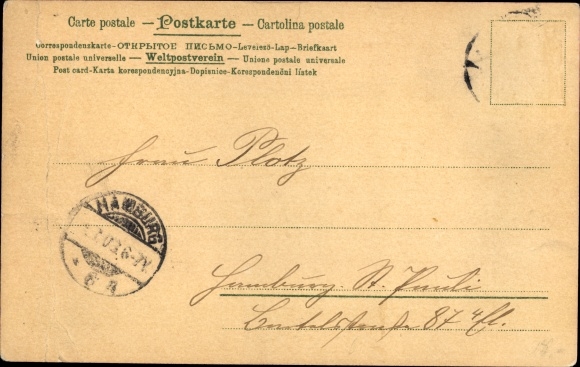 Carte postale — Postkarte — Cartolina postale
Correspondenzkarte-ОТКРЫТОЕ ПИСЬМО-Levelező-Lap-Briefkaart
Union postale universelle — Weltpostverein — Unione postale universale
Post card-Karta korespondencyjna-Dopisnice-Korespondenční lístek
Frau Plotz
HAMBURG
Hamburg. St. Pauli
87